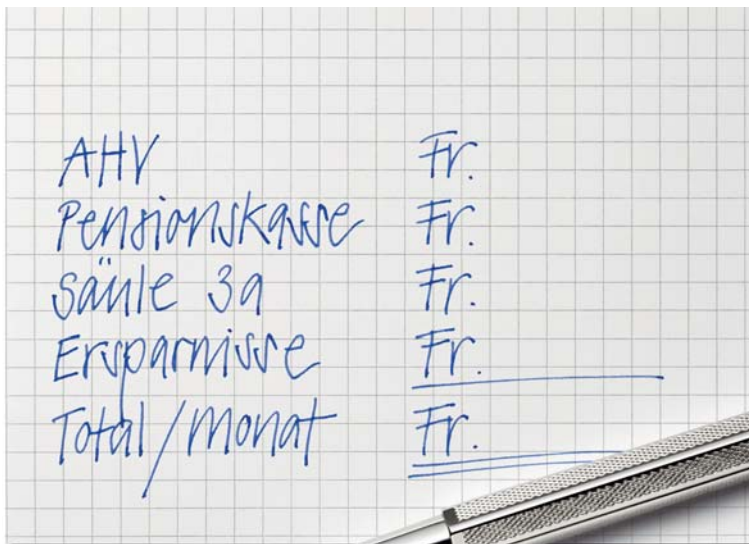 AHV Fr.
Pensionskasse Fr.
Säule 3a Fr.
Ersparnisse Fr.
Total/Monat Fr.